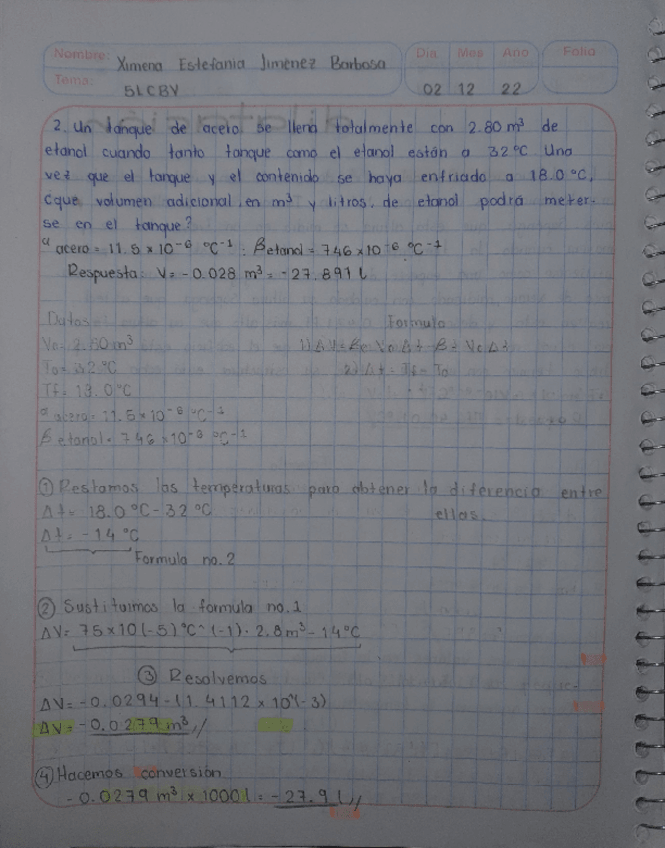 Nombre: Ximena Estefania Jimenez Barbosa Día Mes Año Folio
Tema: 5LCBV 02 12 22
2. Un tanque de acero se llena totalmente con 2.80 m³ de
etanol cuando tanto tanque como el etanol están a 32°C. Una
vez que el tanque y el contenido se haya enfriado a 18.0°C,
¿que volumen adicional, en m³ y litros, de etanol podrá meter-
se en el tanque?
α acero = 11.5 x 10⁻⁶ °C⁻¹ ; βetanol = 746 x 10⁻⁶ °C⁻¹
Respuesta: V = -0.028 m³ = -27.891 l
Datos Formula
Vo= 2.80 m³ 1) ΔV = βe · Vo Δt - β = Vc Δt
To= 32°C 2) Δt = Tf - To
Tf= 18.0°C
α acero= 11.5 x 10⁻⁶ °C⁻¹
β etanol= 746 x 10⁻⁶ °C⁻¹
① Restamos las temperaturas para obtener la diferencia entre
Δt= 18.0°C - 32°C ellas.
Δt= -14°C
Formula no. 2
② Sustituimos la formula no. 1
ΔV= 75x10(-5)°C^(-1) · 2.8 m³ - 14°C
③ Resolvemos
ΔV= -0.0294 - (1.4112 x 10^(-3)
ΔV= -0.0279 m³ //
④ Hacemos conversión
-0.0279 m³ x 1000 l = -27.9 l //